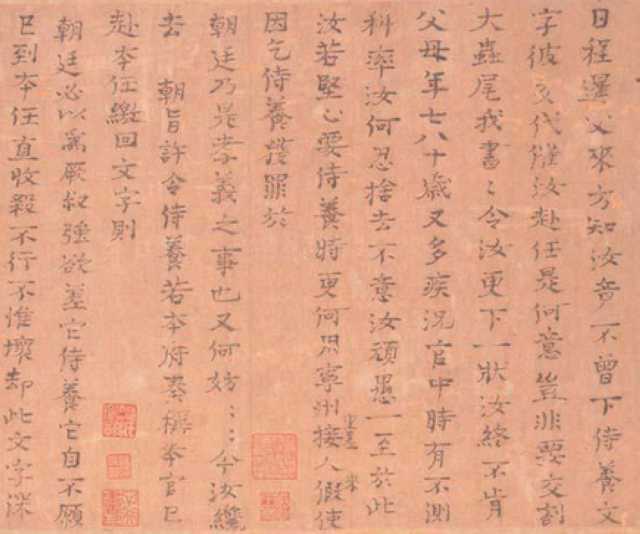 日程暹父來方知汝竟不曾下侍養文
字彼交代催汝赴任是何意豈非要交割
大蟲尾我書〻令汝更下一狀汝終不肯
父母年七八十歲又多疾況官中時有不測
科率汝何忍捨去不意汝頑愚一至於此
汝若堅心要侍養時更何用寧州接人假使
因乞侍養獲罪於
朝廷乃是孝義之事也又何妨〻〻今汝纔
去 朝旨許令侍養若本府奏稱本官已
赴本任繳回文字則
朝廷必以為厥叔強欲差它侍養它自不願
已到本任直收殺不行不惟壞却此文字深